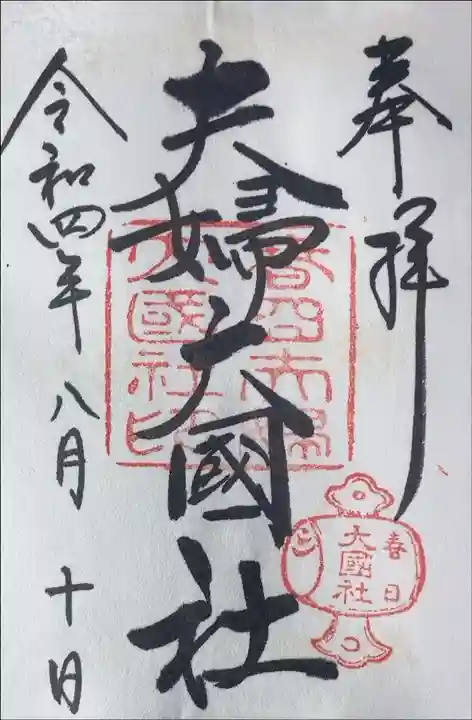 奉拝
夫婦大國社
令和四年八月十日
春日
大國社
春日夫婦
大國社印